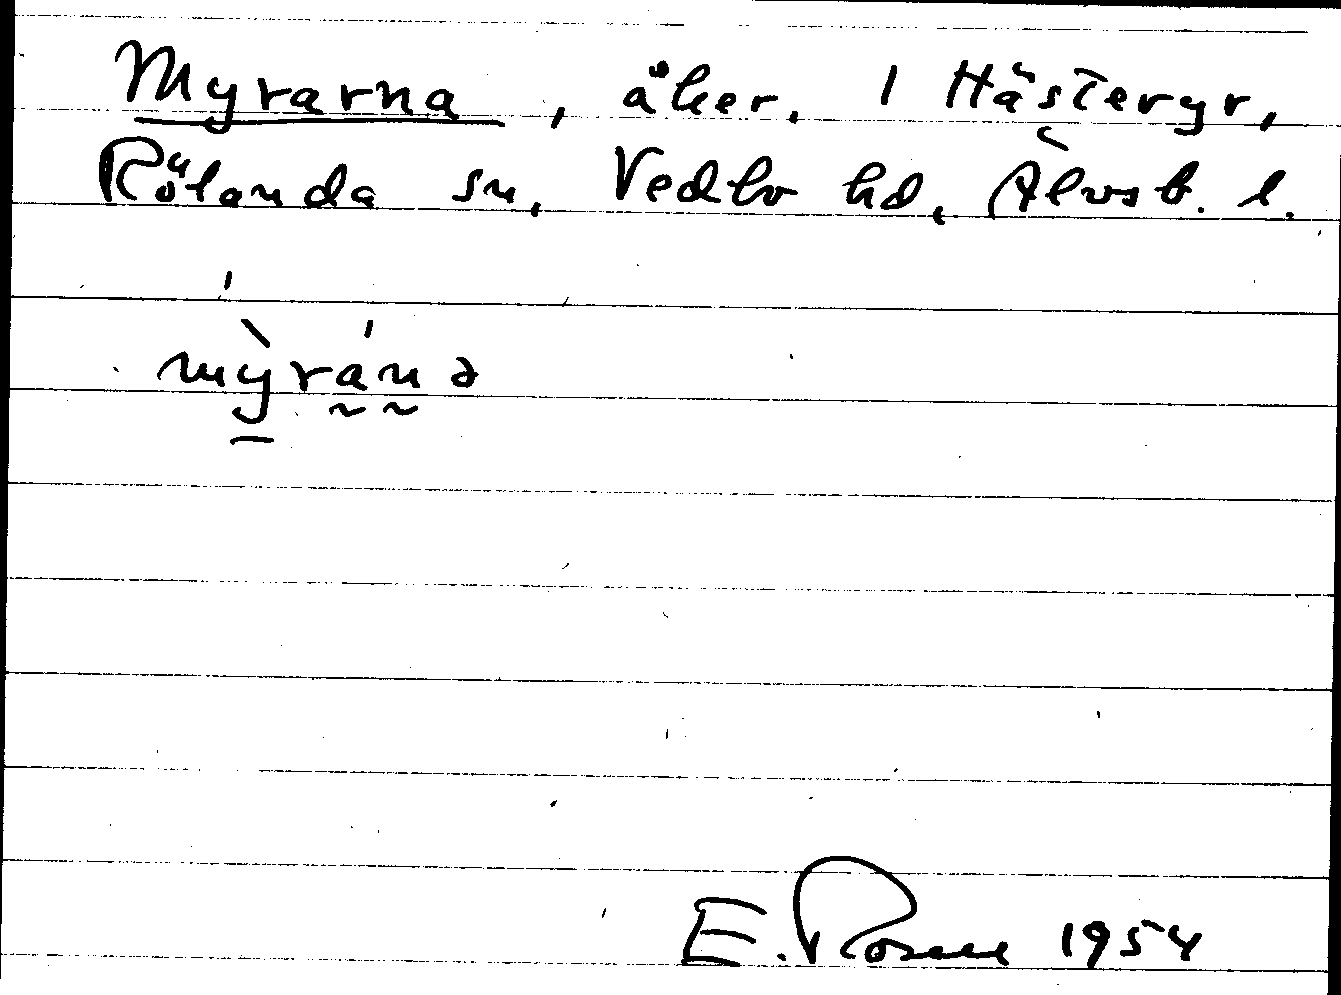 Myrarna, åker. 1 Hästeryr,
Rölanda sn, Vedbo hd, Älvsb. l.
mỳránə
E. Rosell 1954